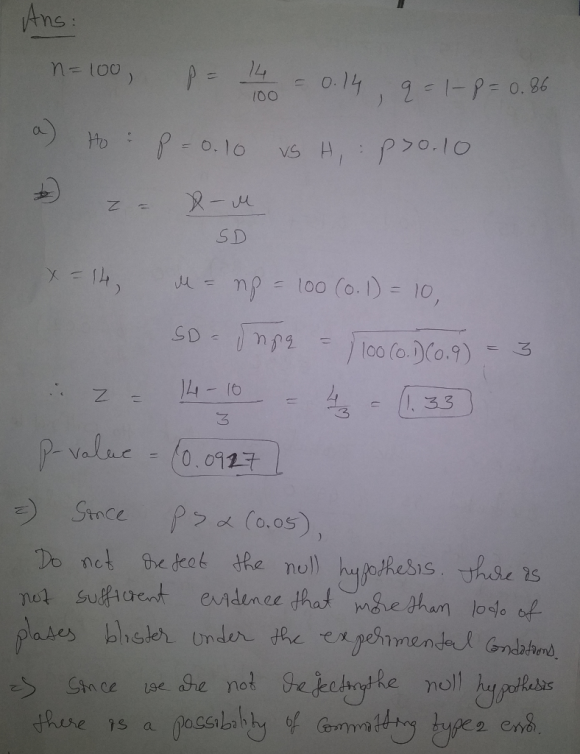 Ans:
n=100, p = 14/100 = 0.14, q = 1-p = 0.86
a) Ho : p = 0.10 vs H1 : p>0.10
b) z = x-μ / SD
x = 14, μ = np = 100(0.1) = 10,
SD = √npq = √100(0.1)(0.9) = 3
∴ z = 14-10 / 3 = 4/3 = 1.33
p-value = 0.0917
=) Since p > α (0.05),
Do not reject the null hypothesis. There is
not sufficient evidence that more than 10% of
plates blister under the experimental conditions.
=> Since we are not rejecting the null hypothesis
there is a possibility of committing type 2 error.